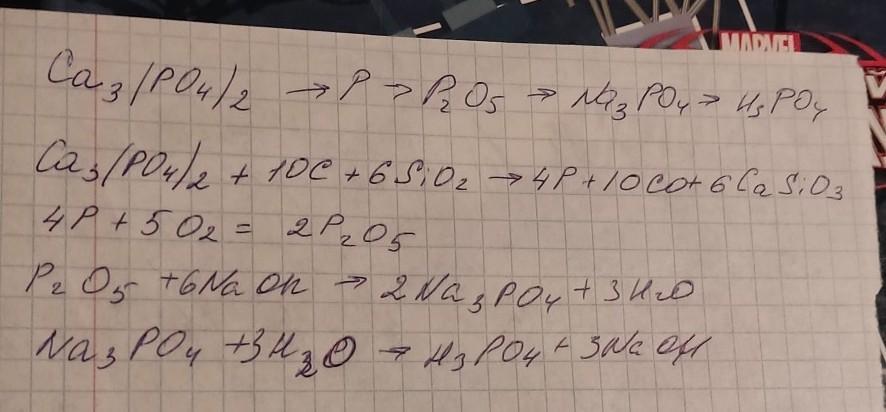 MARVEL
Ca3(PO4)2 → P → P2O5 → Na3PO4 → H3PO4
Ca3(PO4)2 + 10C + 6SiO2 → 4P + 10CO + 6CaSiO3
4P + 5O2 = 2P2O5
P2O5 + 6NaOH → 2Na3PO4 + 3H2O
Na3PO4 + 3H2O → H3PO4 + 3NaOH